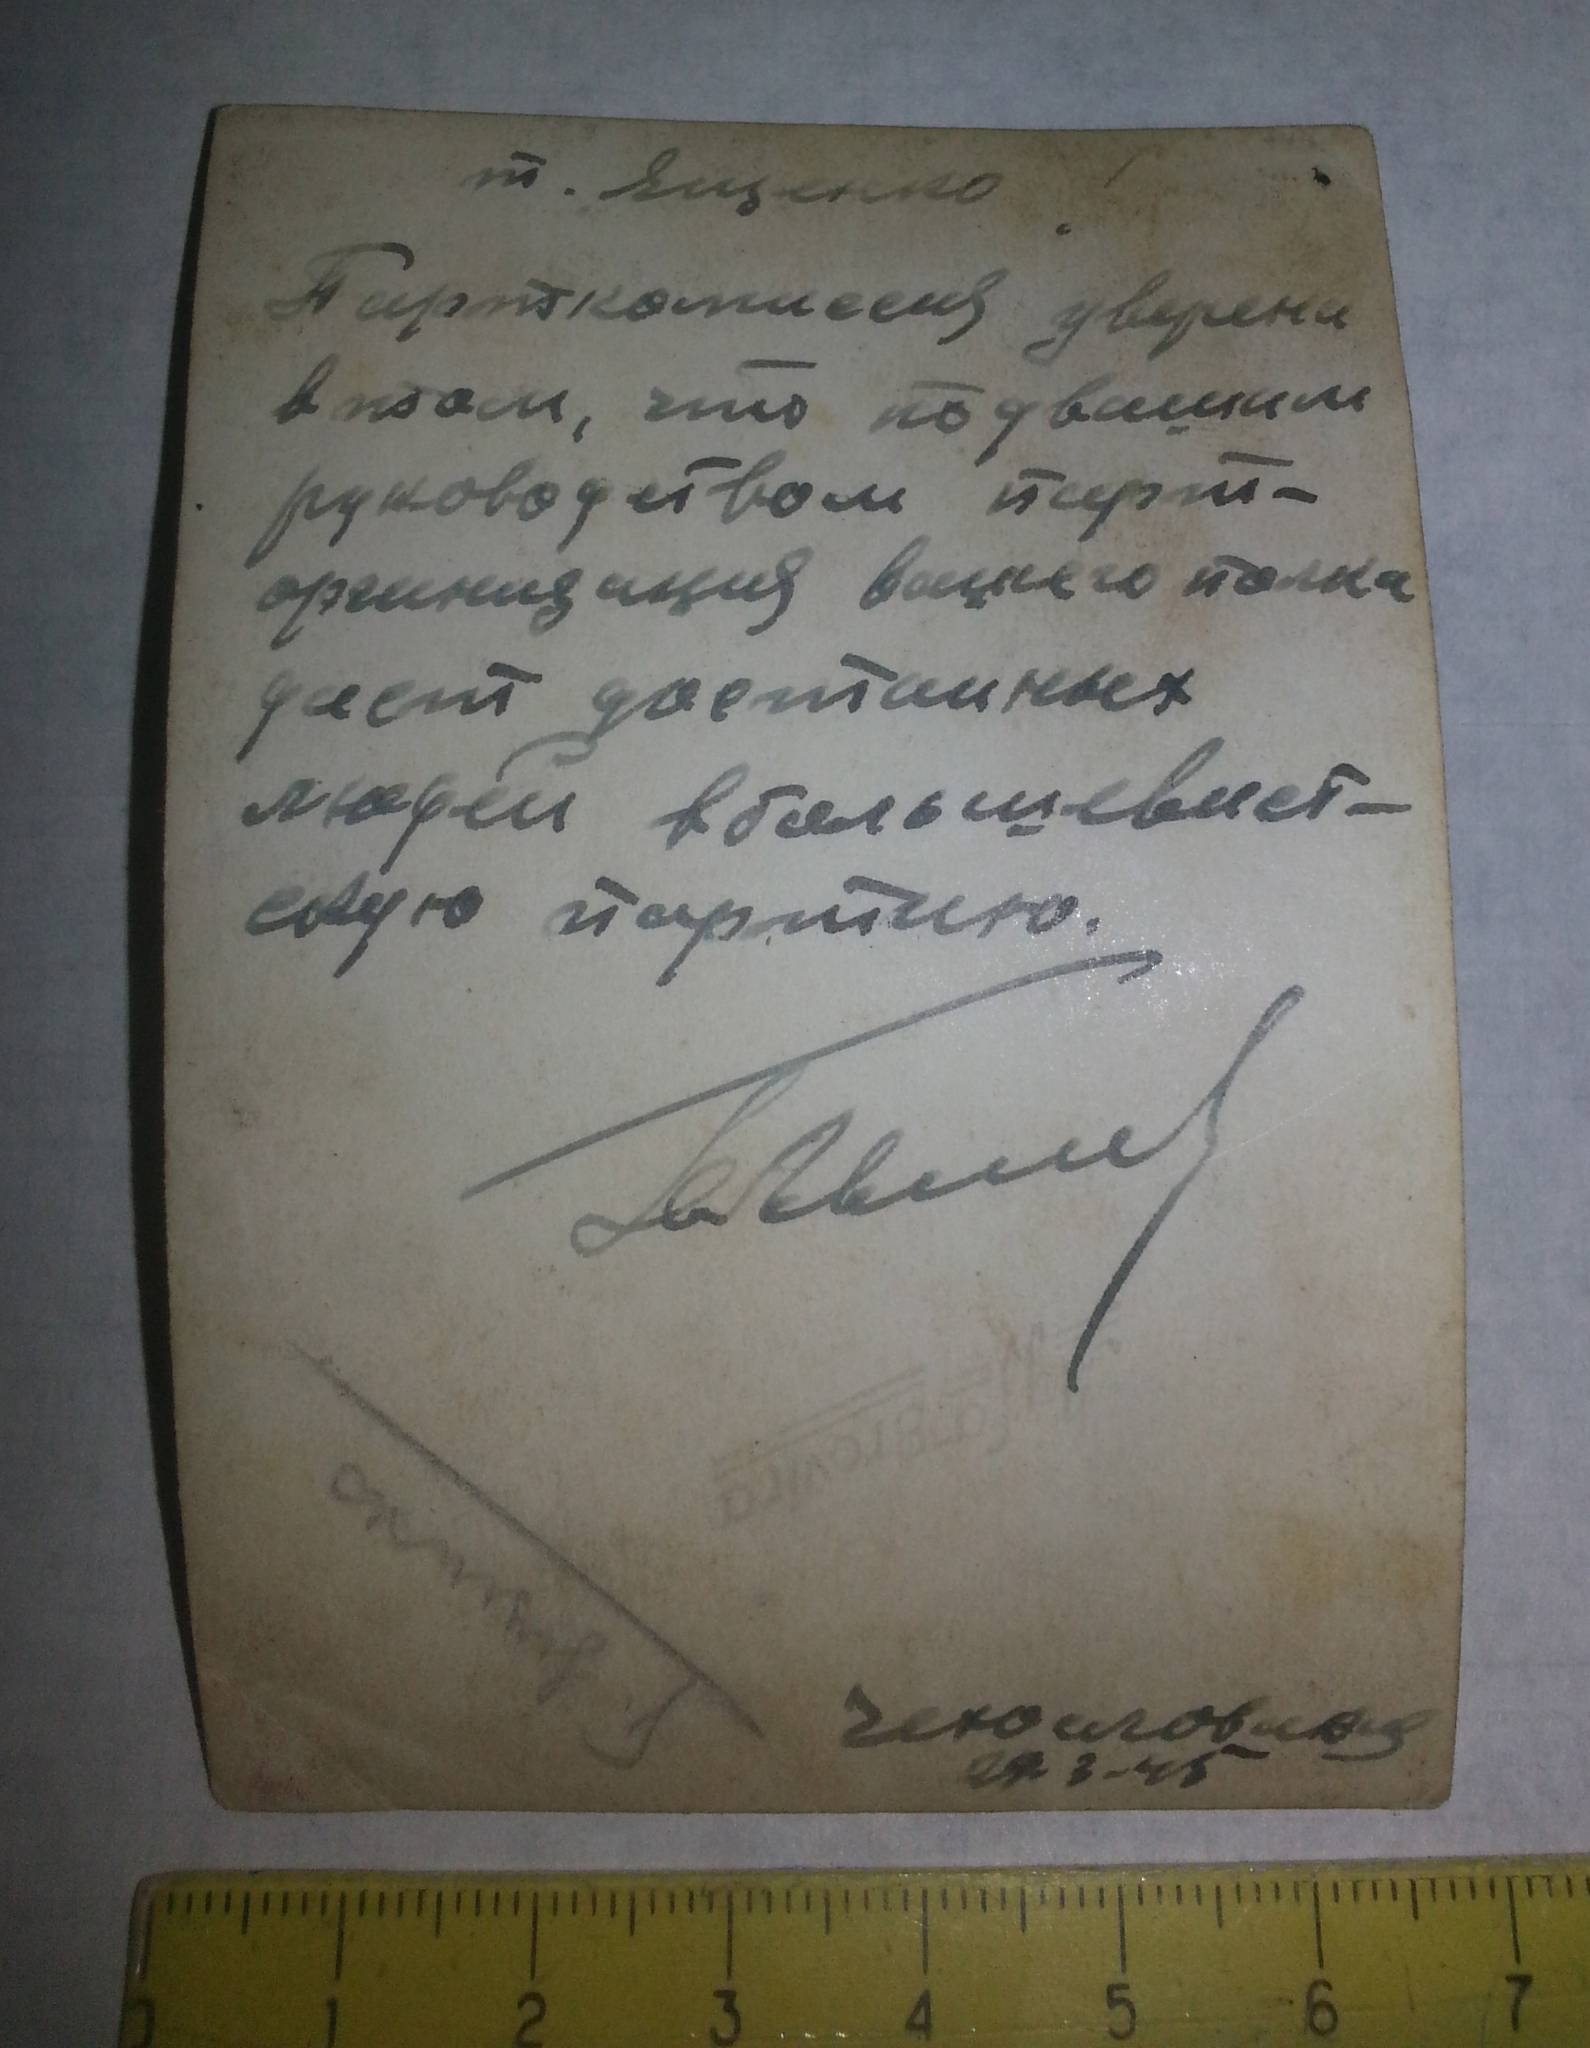 т. Ященко
Парткомиссия уверена
в том, что под вашим
руководством парт-
организация вашего полка
даст достойных
людей в большевист-
скую партию.
Чехословакия
3-45
0 1 2 3 4 5 6 7